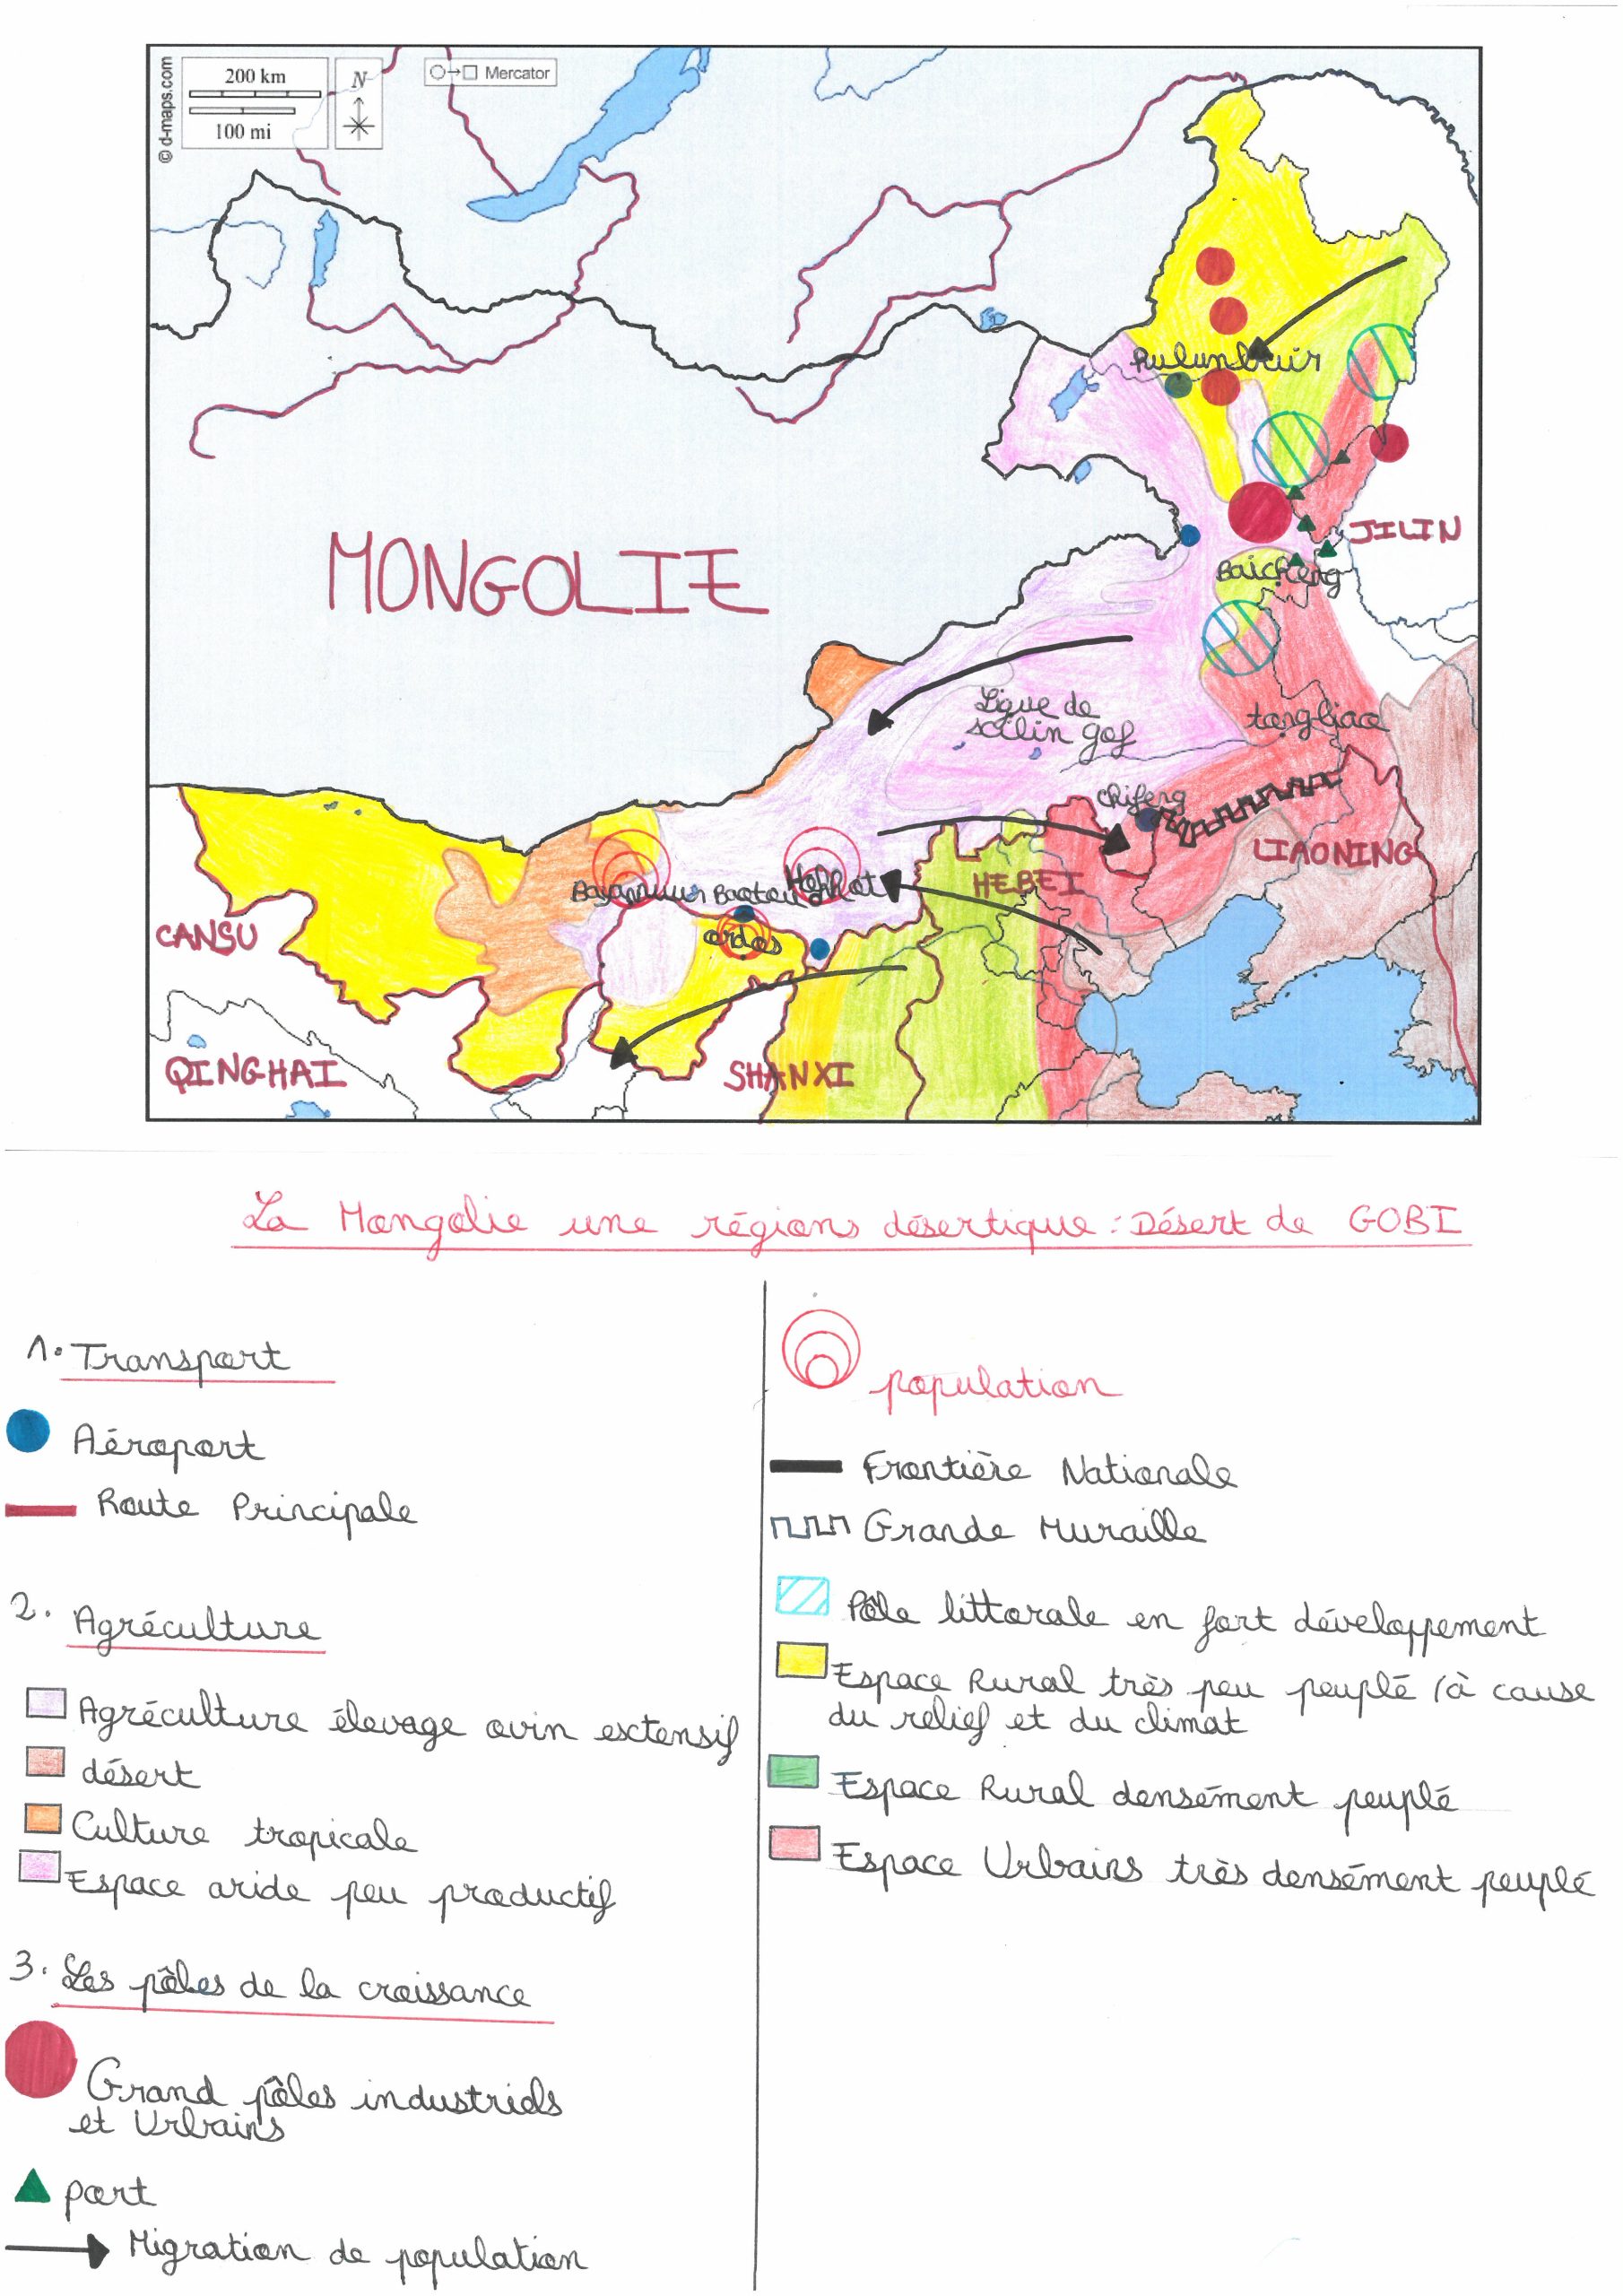 © d-maps.com
200 km
100 mi
N
Mercator
MONGOLIE
Hulunbuir
JILIN
Baicheng
Ligue de
xilin gol
tongliao
chifeng
LIAONING
HEBEI
Bayannuur
Baotou
Hohhot
ordos
CANSU
QINGHAI
SHANXI
La Mongolie une régions désertique : Désert de GOBI
1. Transport
Aéroport
Route Principale
2. Agréculture
Agréculture élevage ovin esctensif
désert
Culture tropicale
Espace aride peu productif
3. Les pôles de la croissance
Grand pôles industriels
et Urbains
port
Migration de population
population
Frontière Nationale
Grande Muraille
Pôle littorale en fort développement
Espace Rural très peu peuplé (à cause
du relief et du climat
Espace Rural densément peuplé
Espace Urbains très densément peuplé